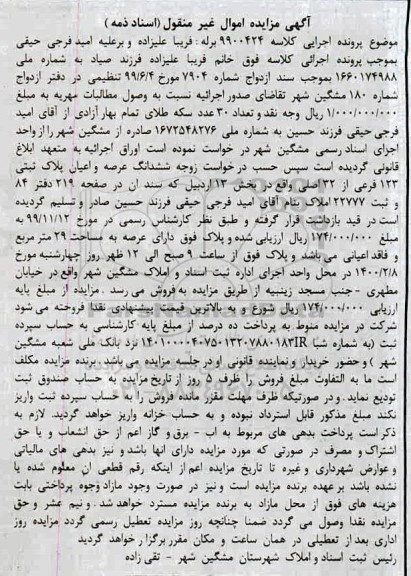 آگهی مزایده اموال غیر منقول (اسناد ذمه)
موضوع پرونده اجرایی کلاسه ۹۹۰۰۴۲۴ برله : فریبا علیزاده و برعلیه امید فرجی حیقی
بموجب پرونده اجرائی کلاسه فوق خانم فریبا علیزاده فرزند صیاد به شماره ملی
۱۶۶۰۱۷۴۹۸۸ بموجب سند ازدواج شماره ۷۹۰۴ مورخ ۹۹/۶/۴ تنظیمی در دفتر ازدواج
شماره ۱۸۰ مشگین شهر تقاضای صدور اجرائیه نسبت به وصول مطالبات مهریه به مبلغ
۱/۰۰۰/۰۰۰/۰۰۰ ریال وجه نقد و تعداد ۳۰ عدد سکه طلای تمام بهار آزادی از آقای امید
فرجی حیقی فرزند حسین به شماره ملی ۱۶۷۲۵۴۸۲۷۶ صادره از مشگین شهر را از واحد
اجرای اسناد رسمی مشگین شهر در خواست نموده است اوراق اجرائیه به متعهد ابلاغ
قانونی گردیده است سپس حسب درخواست زوجه ششدانگ عرصه و اعیان پلاک ثبتی
۱۲۳ فرعی از ۳۲ اصلی واقع در بخش ۱۳ اردبیل که سند ان در صفحه ۲۱۹ دفتر ۸۴
و ثبت ۲۲۷۷۷ املاک بنام آقای امید فرجی حیقی فرزند حسین صادر و تسلیم گردیده
است در قید بازداشت قرار گرفته و طبق نظر کارشناس رسمی در مورخ ۹۹/۱۱/۱۲ به
مبلغ ۱۷۴/۰۰۰/۰۰۰ ریال ارزیابی شده و پلاک فوق دارای عرصه به مساحت ۲۹ متر مربع
و فاقد اعیانی می باشد و پلاک فوق از ساعت ۹ صبح الی ۱۲ ظهر روز چهارشنبه مورخ
۱۴۰۰/۲/۸ در محل واحد اجرای اداره ثبت اسناد و املاک مشگین شهر واقع در خیابان
مطهری - جنب مسجد زینبیه از طریق مزایده به فروش می رسد . مزایده از مبلغ پایه
ارزیابی ۱۷۴/۰۰۰/۰۰۰ ریال شورع و به بالاترین قیمت پیشنهادی نقدا فروخته می شود
شرکت در مزایده منوط به پرداخت ده درصد از مبلغ پایه کارشناسی به حساب سپرده
ثبت (به شماره شبا نزد بانک ملی شعبه مشگین
شهر ) و حضور خریدار و نماینده قانونی او در جلسه مزایده می باشد . برنده مزایده مکلف
است ما به التفاوت مبلغ فروش را ظرف ۵ روز از تاریخ مزایده به حساب صندوق ثبت
تودیع نماید . و در صورتیکه ظرف مهلت مقرر مانده فروش را به حساب سپرده ثبت واریز
نکند مبلغ مذکور قابل استرداد نبوده و به حساب خزانه واریز خواهد گردید. لازم به
ذکر است پرداخت بدهی های مربوط به اب - برق و گاز اعم از حق انشعاب و یا حق
اشتراک و مصرف در صورتی که مورد مزایده دارای انها باشد و نیز بدهی های مالیاتی
و عوارض شهرداری و غیره تا تاریخ مزایده اعم از اینکه رقم قطعی ان معلوم شده یا
نشده باشد بر عهده برنده مزایده است و نیز در صورت وجود مازاد وجوه پرداختی بابت
هزینه های فوق از محل مازاد به برنده مزایده مسترد خواهد شد . و نیم عشر و حق
مزایده نقدا وصول می گردد ضمنا چنانچه روز مزایده تعطیل رسمی گردد مزایده روز
اداری بعد از تعطیلی در همان ساعت و مکان مقرر برگزار خواهد گردید
رئیس ثبت اسناد و املاک شهرستان مشگین شهر - تقی زاده